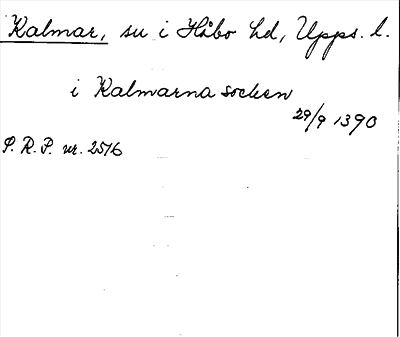 Kalmar, sn i Håbo hd, Upps. l.
i Kalmarna socken
29/9 1390
S. R. P. nr. 2516